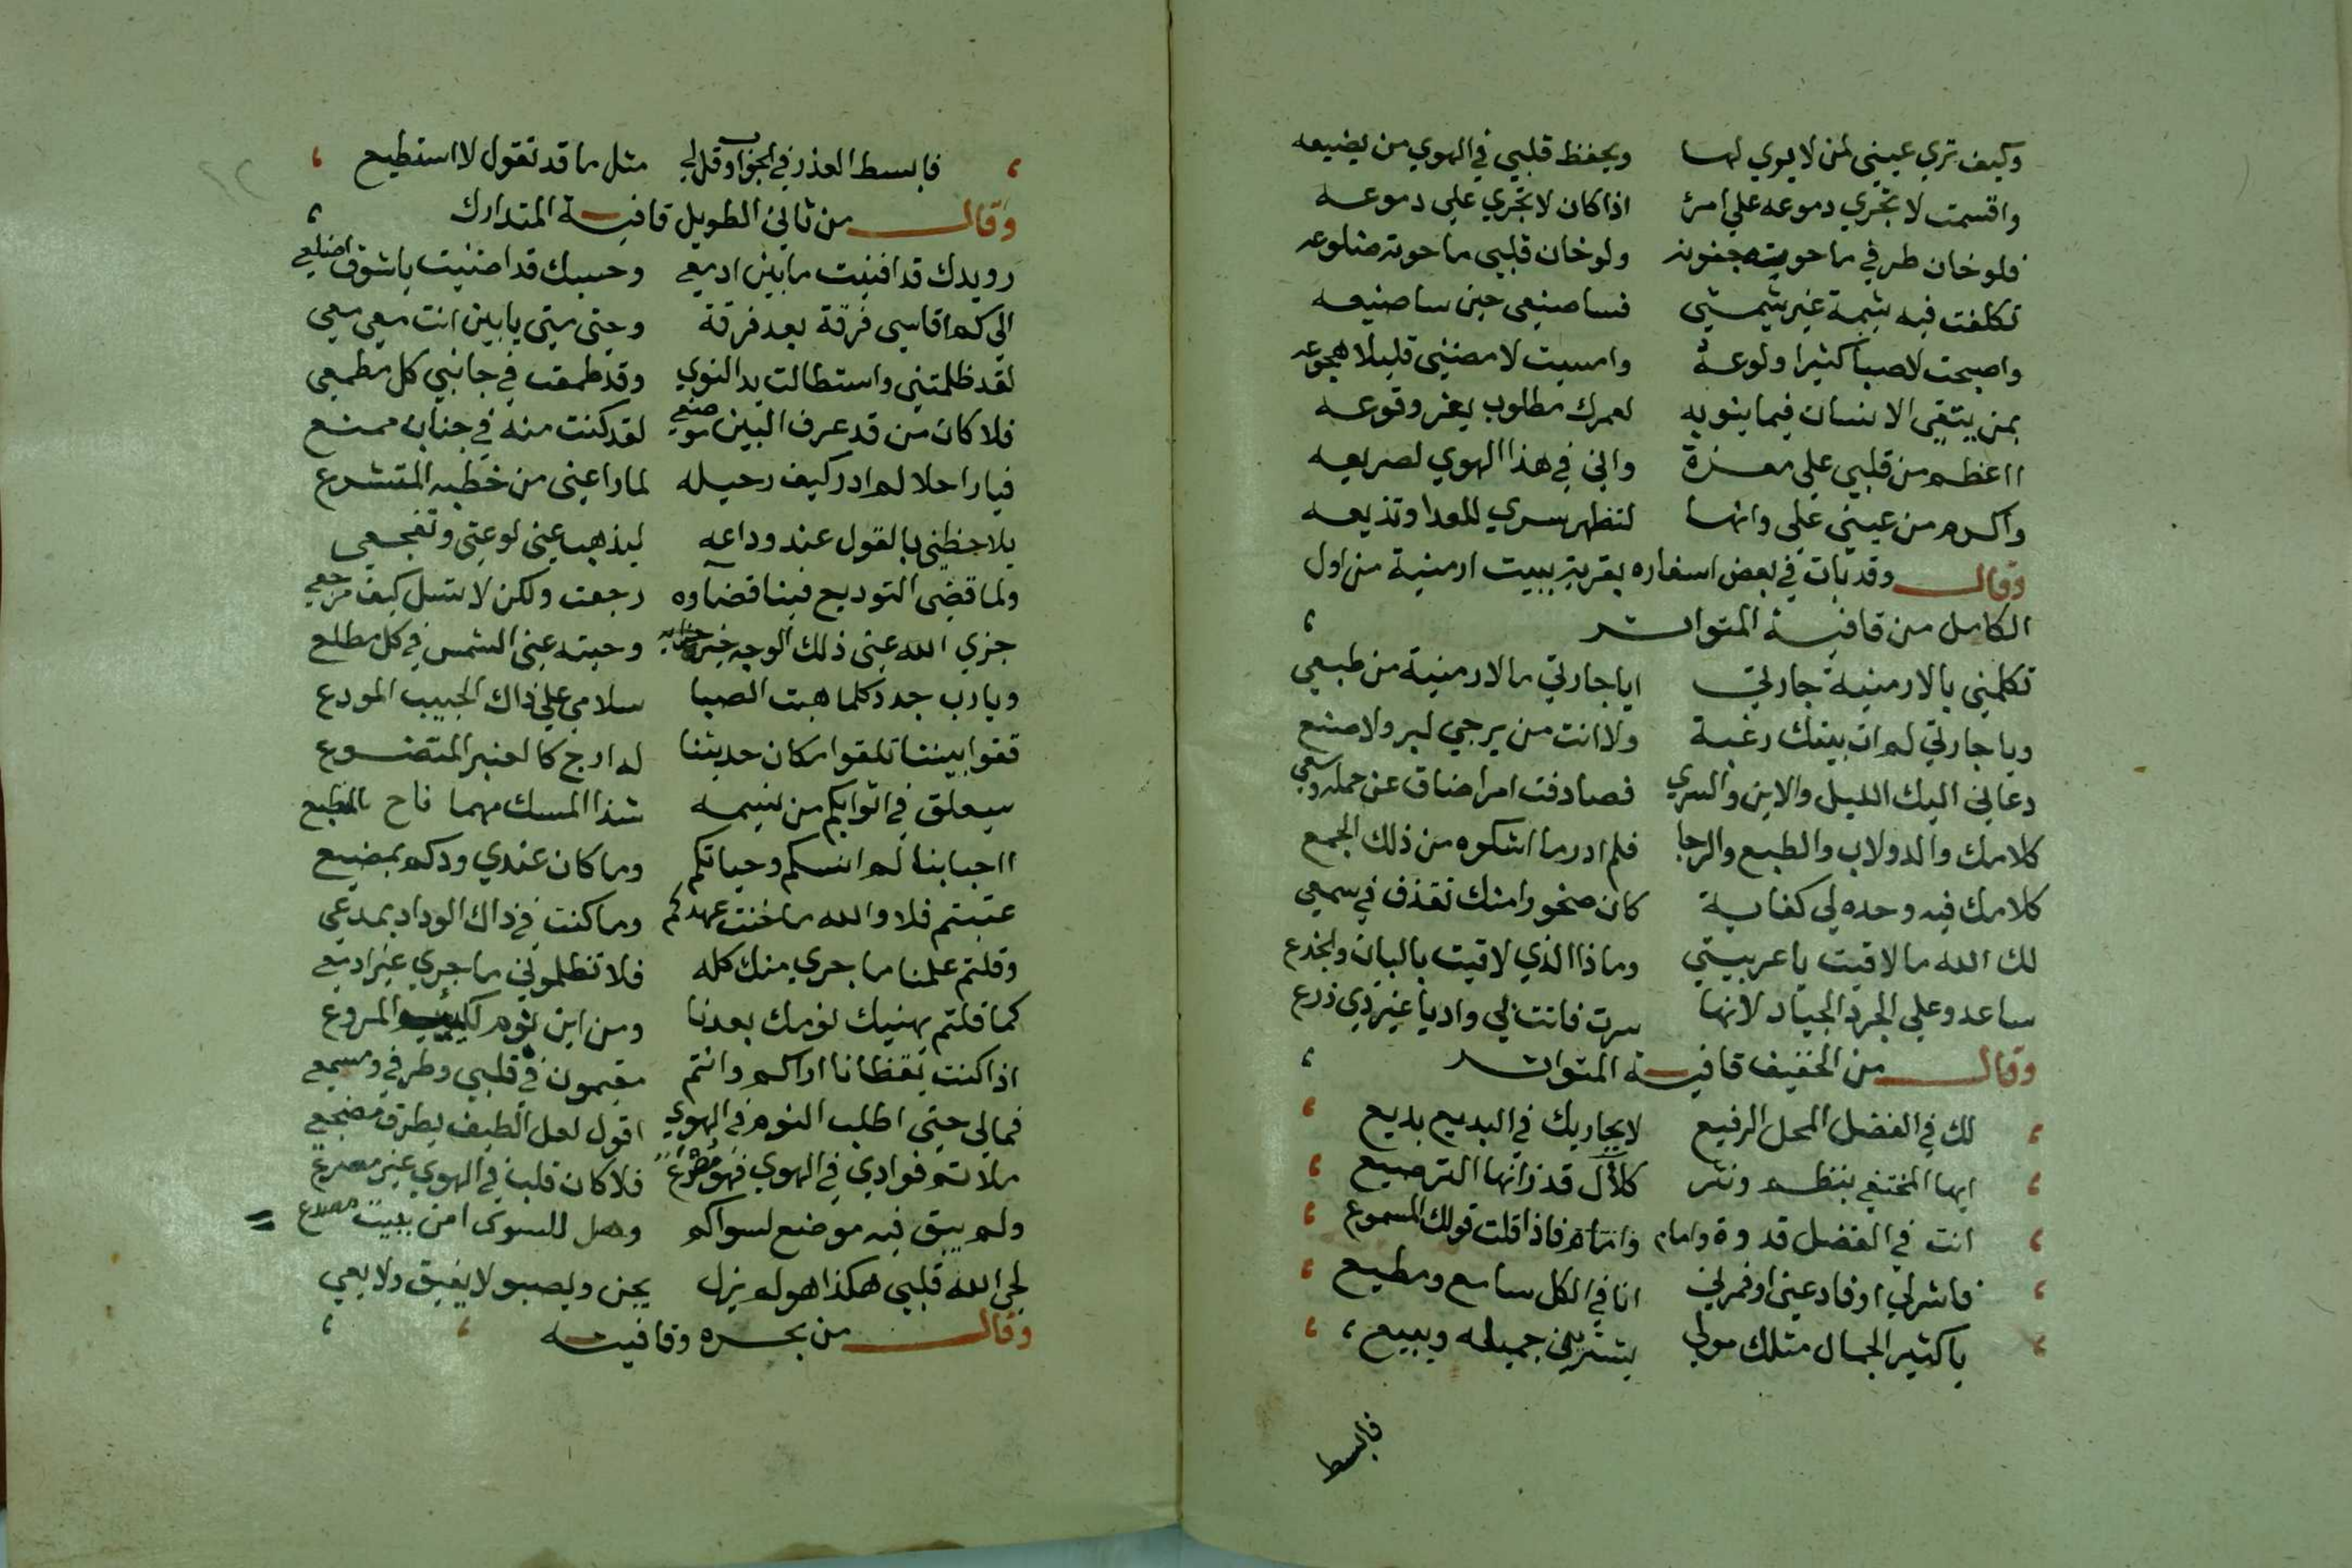 وكيف تري عيني لمن لا يري لها ويحفظ قلبي في الهوي من يضيعه
واقسمت لا تجري دموعه علي امرئ اذا كان لا تجري علي دموعه
فلو خان طرفي ما حوته جفونه ولو خان قلبي ما حوته ضلوعه
تكلفت فيه شيمة غير شيمتي فسا صنيعي حين سا صنيعه
واصبحت لا صبا كثيرا ولوعه وامسيت لا مضني قليلا هجوعه
بمن يتقي الانسان فيما ينوبه لعمرك مطلوب يعز وقوعه
ااعظم من قلبي علي معزة واني في هذا الهوي لصريعه
واكرم من عيني علي وانها لتظهر سري للعدا وتذيعه
وقال وقد بات في بعض اسفاره بقرية ببيت ارمنية من اول
الكامل من قافية المتواتر
تكلمني بالارمنية جارتي ايا جارتي ما الارمنية من طبعي
ويا جارتي لم ات بيتك رغبة ولا انت من يرجي لبر ولا صنع
دعاني اليك الليل والاين والسري فصادفت امرا ضاق عن حمله وسعي
كلامك والدولاب والطبع والرحا فلم ادر ما اشكوه من ذلك الجمع
كلامك فيه وحده لي كفاية كان صخورا منك تقذف في سمعي
لك الله ما لاقيت يا عربيتي وماذا الذي لاقيت بالبان والجذع
ساعدو علي الجرد الجياد لانها سرت فاتت بي واديا غير ذي زرع
وقال من الخفيف قافية المتواتر
لك في الفضل المحل الرفيع لا يجاريك في البديع بديع
ايها المختفي بنظم ونثر كلآل قد زانها الترصيع
انت في الفضل قدوة وامام وانتاه فاذا قلت قولك المسموع
فاشرلي او فادعني او فمرني انا في الكل سامع ومطيع
يا كثير الجمال مثلك مولي يشتريني جميله ويبيع
فابسط
فابسط العذر في الجواب وقل لي مثل ما قد تقول لا استطيع
وقال من ثاني الطويل قافية المتدارك
رويدك قد افنيت ما بين ادمعي وحسبك قد اضنيت يا شوق اضلعي
الي كم اقاسي فرقة بعد فرقة وحتي متي يا بين انت معي معي
لقد ظلمتني واستطالت يد النوي وقد طمعت في جانبي كل مطمعي
فلا كان من قد عرف البين موضعي لقد كنت منه في جناب ممنع
فيا راحلا لم ادر كيف رحيله لما راعني من خطبه المتشرع
يلاحظني بالقول عند وداعه ليذهب عني لوعتي وتفجعي
ولما قضي التوديع فينا قضاوه رجعت ولكن لا تسل كيف مرجعي
جزي الله عني ذلك الوجه خير جزايه وحيته عني الشمس في كل مطلع
ويا رب جدد كلما هبت الصبا سلامي علي ذاك الحبيب المودع
قفوا بيننا تلقوا مكان حديثنا له ارج كالعنبر المتضوع
سيعلق في اثوابكم من نسيمه شذا المسك مهما فاح بالطبع
ااحبابنا لم انسكم وحياتكم وما كان عندي ودكم بمضيع
عتبتم فلا والله ما خنت عهدكم وما كنت في ذاك الوداد بمدعي
وقلتم علمنا ما جري منك كله فلا تظلموني ما جري غير ادمعي
كما قلتم يهنيك نومك بعدنا ومن اين نوم للكئيب المروع
اذا كنت يقظانا اراكم وانتم مقيمون في قلبي وطرفي ومسمعي
فمالي حتي اطلب النوم في الهوي اقول لعل الطيف يطرق مضجعي
ملاتم فوادي في الهوي فهو مترع فلا كان قلب في الهوي غير مصرع
ولم يبق فيه موضع لسواكم وهل للسوي امن ببيت مصدع
لحي الله قلبي هكذا هو لم يزل يحن ويصبو لا يفيق ولا يعي
وقال من بحره وقافيته